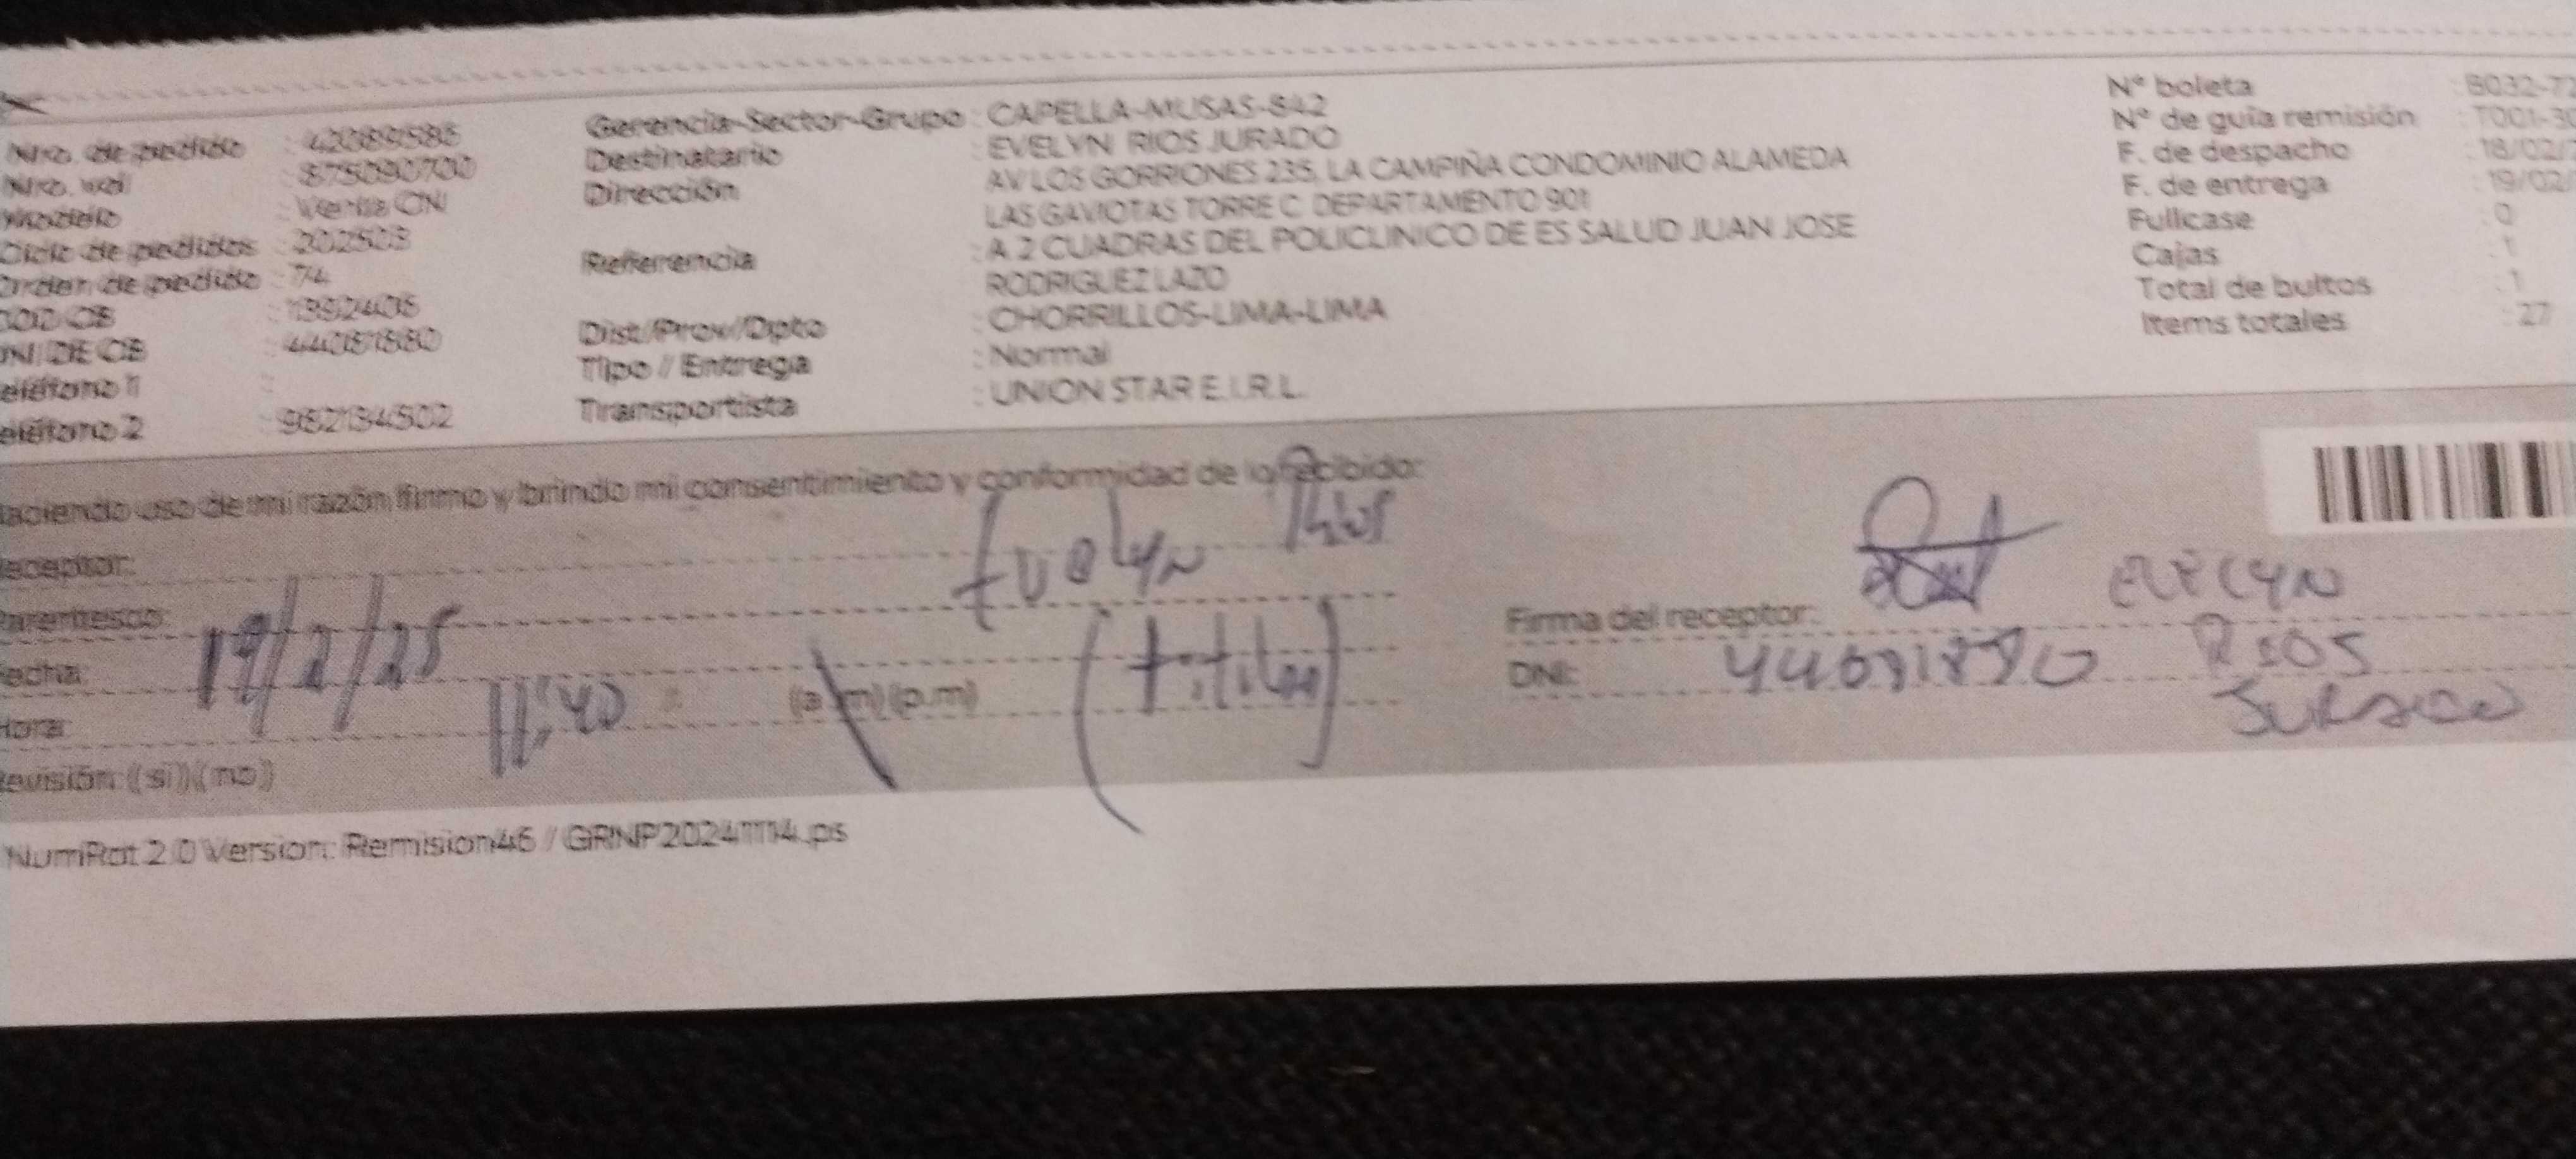 Nro. de pedido : 42089586
Nro. wal : 875090700
Modelo : Venta CN
Ciclo de pedidos : 202503
Orden de pedido : 74
COD CB : 1392406
DNI DE CB : 44081880
eléfono 1 :
eléfono 2 : 982134502
Gerencia-Sector-Grupo : CAPELLA-MUSAS-842
Destinatario : EVELYN RIOS JURADO
Dirección : AV LOS GORRIONES 235, LA CAMPIÑA CONDOMINIO ALAMEDA
LAS GAVIOTAS TORRE C DEPARTAMENTO 901
Referencia : A 2 CUADRAS DEL POLICLINICO DE ES SALUD JUAN JOSE
RODRIGUEZ LAZO
Dist/Prov/Dpto : CHORRILLOS-LIMA-LIMA
Tipo / Entrega : Normal
Transportista : UNION STAR E.I.R.L.
N° boleta : B032-72
N° de guía remisión : T001-30
F. de despacho : 18/02/
F. de entrega : 19/02/
Fullcase : 0
Cajas : 1
Total de bultos : 1
Items totales : 27
aciendo uso de mi razón firmo y brindo mi consentimiento y conformidad de lo recibido:
eceptor: Evelyn Rios
arentesco: (titular)
echa: 19/2/25
Hora: 11:40 : (a.m) (p.m)
evisión: (si) (no)
Firma del receptor: EVELYN
RIOS
JURADO
DNI: 44081880
NumRot 2.0 Version: Remision46 / GRNP20241114.ps